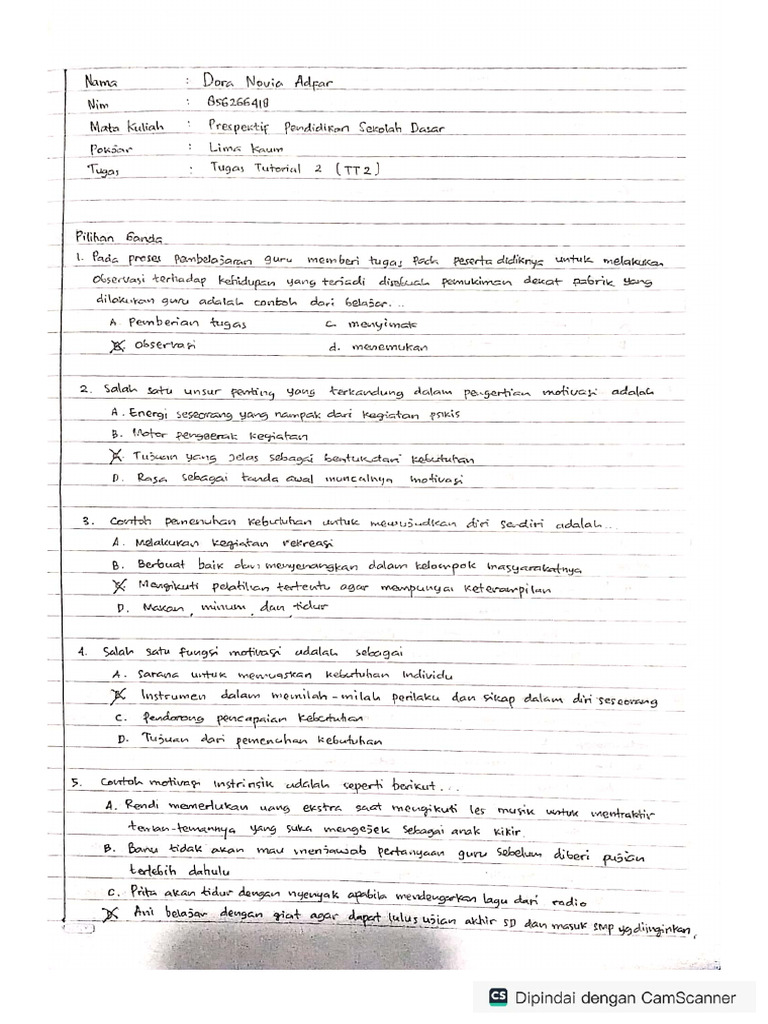 Nama : Dora Novia Adfar
Nim : 856266418
Mata Kuliah : Prespektif Pendidikan Sekolah Dasar
Pokjar : Lima Kaum
Tugas : Tugas Tutorial 2 (TT2)
Pilihan Ganda
1. Pada proses pambelajaran guru memberi tugas pada peserta didiknya untuk melakukan
observasi terhadap kehidupan yang terjadi disebuah pemukiman dekat pabrik yang
dilakukan guru adalah contoh dari belajar...
A. Pemberian tugas c. menyimak
B. observasi d. menemukan
2. Salah satu unsur penting yang terkandung dalam pengertian motivasi adalah
A. Energi seseorang yang nampak dari kegiatan psikis
B. Motor penggerak kegiatan
C. Tujuan yang jelas sebagai bentuk dari kebutuhan
D. Rasa sebagai tanda awal munculnya motivasi
3. Contoh pemenuhan kebutuhan untuk mewujudkan diri sendiri adalah...
A. Melakukan kegiatan rekreasi
B. Berbuat baik dan menyenangkan dalam kelompok masyarakatnya
C. Mengikuti pelatihan tertentu agar mempunyai keterampilan
D. Makan, minum, dan tidur
4. Salah satu fungsi motivasi adalah sebagai
A. Sarana untuk memuaskan kebutuhan individu
B. Instrumen dalam memilah-milah perilaku dan sikap dalam diri seseorang
C. Pendorong pencapaian kebutuhan
D. Tujuan dari pemenuhan kebutuhan
5. Contoh motivasi instrinsik adalah seperti berikut...
A. Rendi memerlukan uang ekstra saat mengikuti les musik untuk mentraktir
teman-temannya yang suka mengejek sebagai anak kikir.
B. Banu tidak akan mau menjawab pertanyaan guru sebelum diberi pujian
terlebih dahulu
C. Prita akan tidur dengan nyenyak apabila mendengarkan lagu dari radio
D. Ani belajar dengan giat agar dapat lulus ujian akhir SD dan masuk SMP yg diinginkan.
CS Dipindai dengan CamScanner